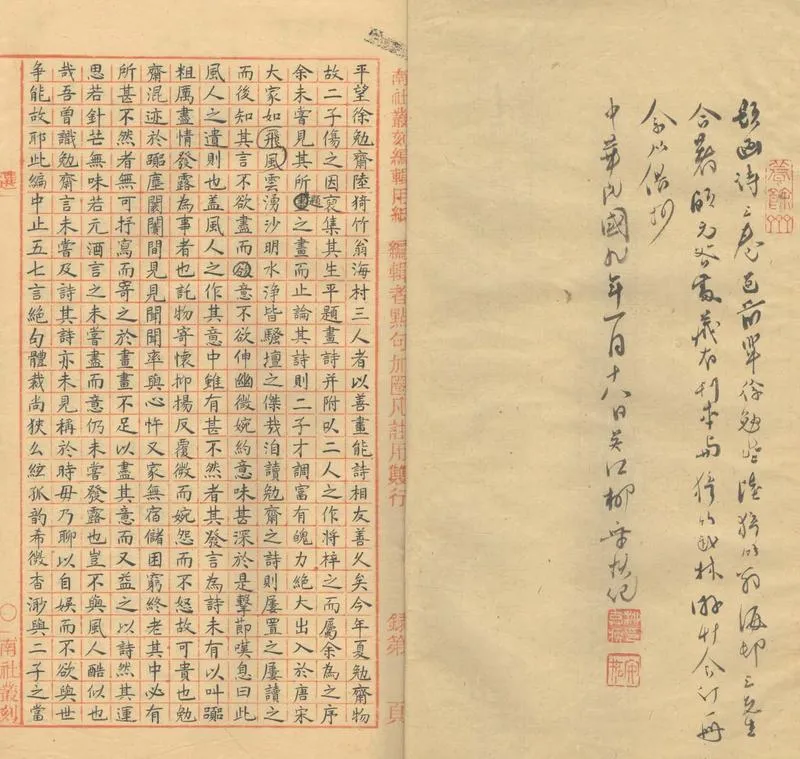 題畫詩三卷邑前輩徐勉齋陸猗竹翁海邨三先生
合著頃元咎處藏有刊本與猗竹林游草合訂一冊
余以借抄
中華民國九年一月十八日吳江柳棄疾記
南社叢刻編輯用紙 編輯者點句加圈凡註用雙行 錄第 頁
平望徐勉齋陸猗竹翁海村三人者以善畫能詩相友善久矣今年夏勉齋物
故二子傷之因裒集其生平題畫詩并附㠯二人之作將梓之而屬余為之序
余未嘗見其所題之畫而止論其詩則二子才調富有魄力絕大出入於唐宋
大家如飛風雲湧沙明水淨皆騷壇之傑哉洎讀勉齋之詩則屢置之屢讀之
而後知其言不欲盡而意不欲伸幽微婉約意味甚深於是擊節嘆息曰此
風人之遺則也蓋風人之作其意中雖有甚不然者其發言為詩未有以叫囂
粗厲盡情發露為事者也託物寄懷抑揚反覆微而婉怨而不怒故可貴也勉
齋混迹於囂塵闤闠間見見聞聞率與心忤又家無宿儲困窮終老其中必有
所甚不然者無可抒寫而寄之於畫畫不足以盡其意而又益之以詩然其運
思若針芒無味若元酒言之未嘗盡而意仍未嘗發露也豈不與風人酷似也
哉吾曾識勉齋言未嘗及詩其詩亦未見稱於時毋乃聊以自娛而不欲與世
爭能故耶此編中止五七言絕句體裁尚狹么絃孤韵希微杳渺與二子之當
選 南社叢刻